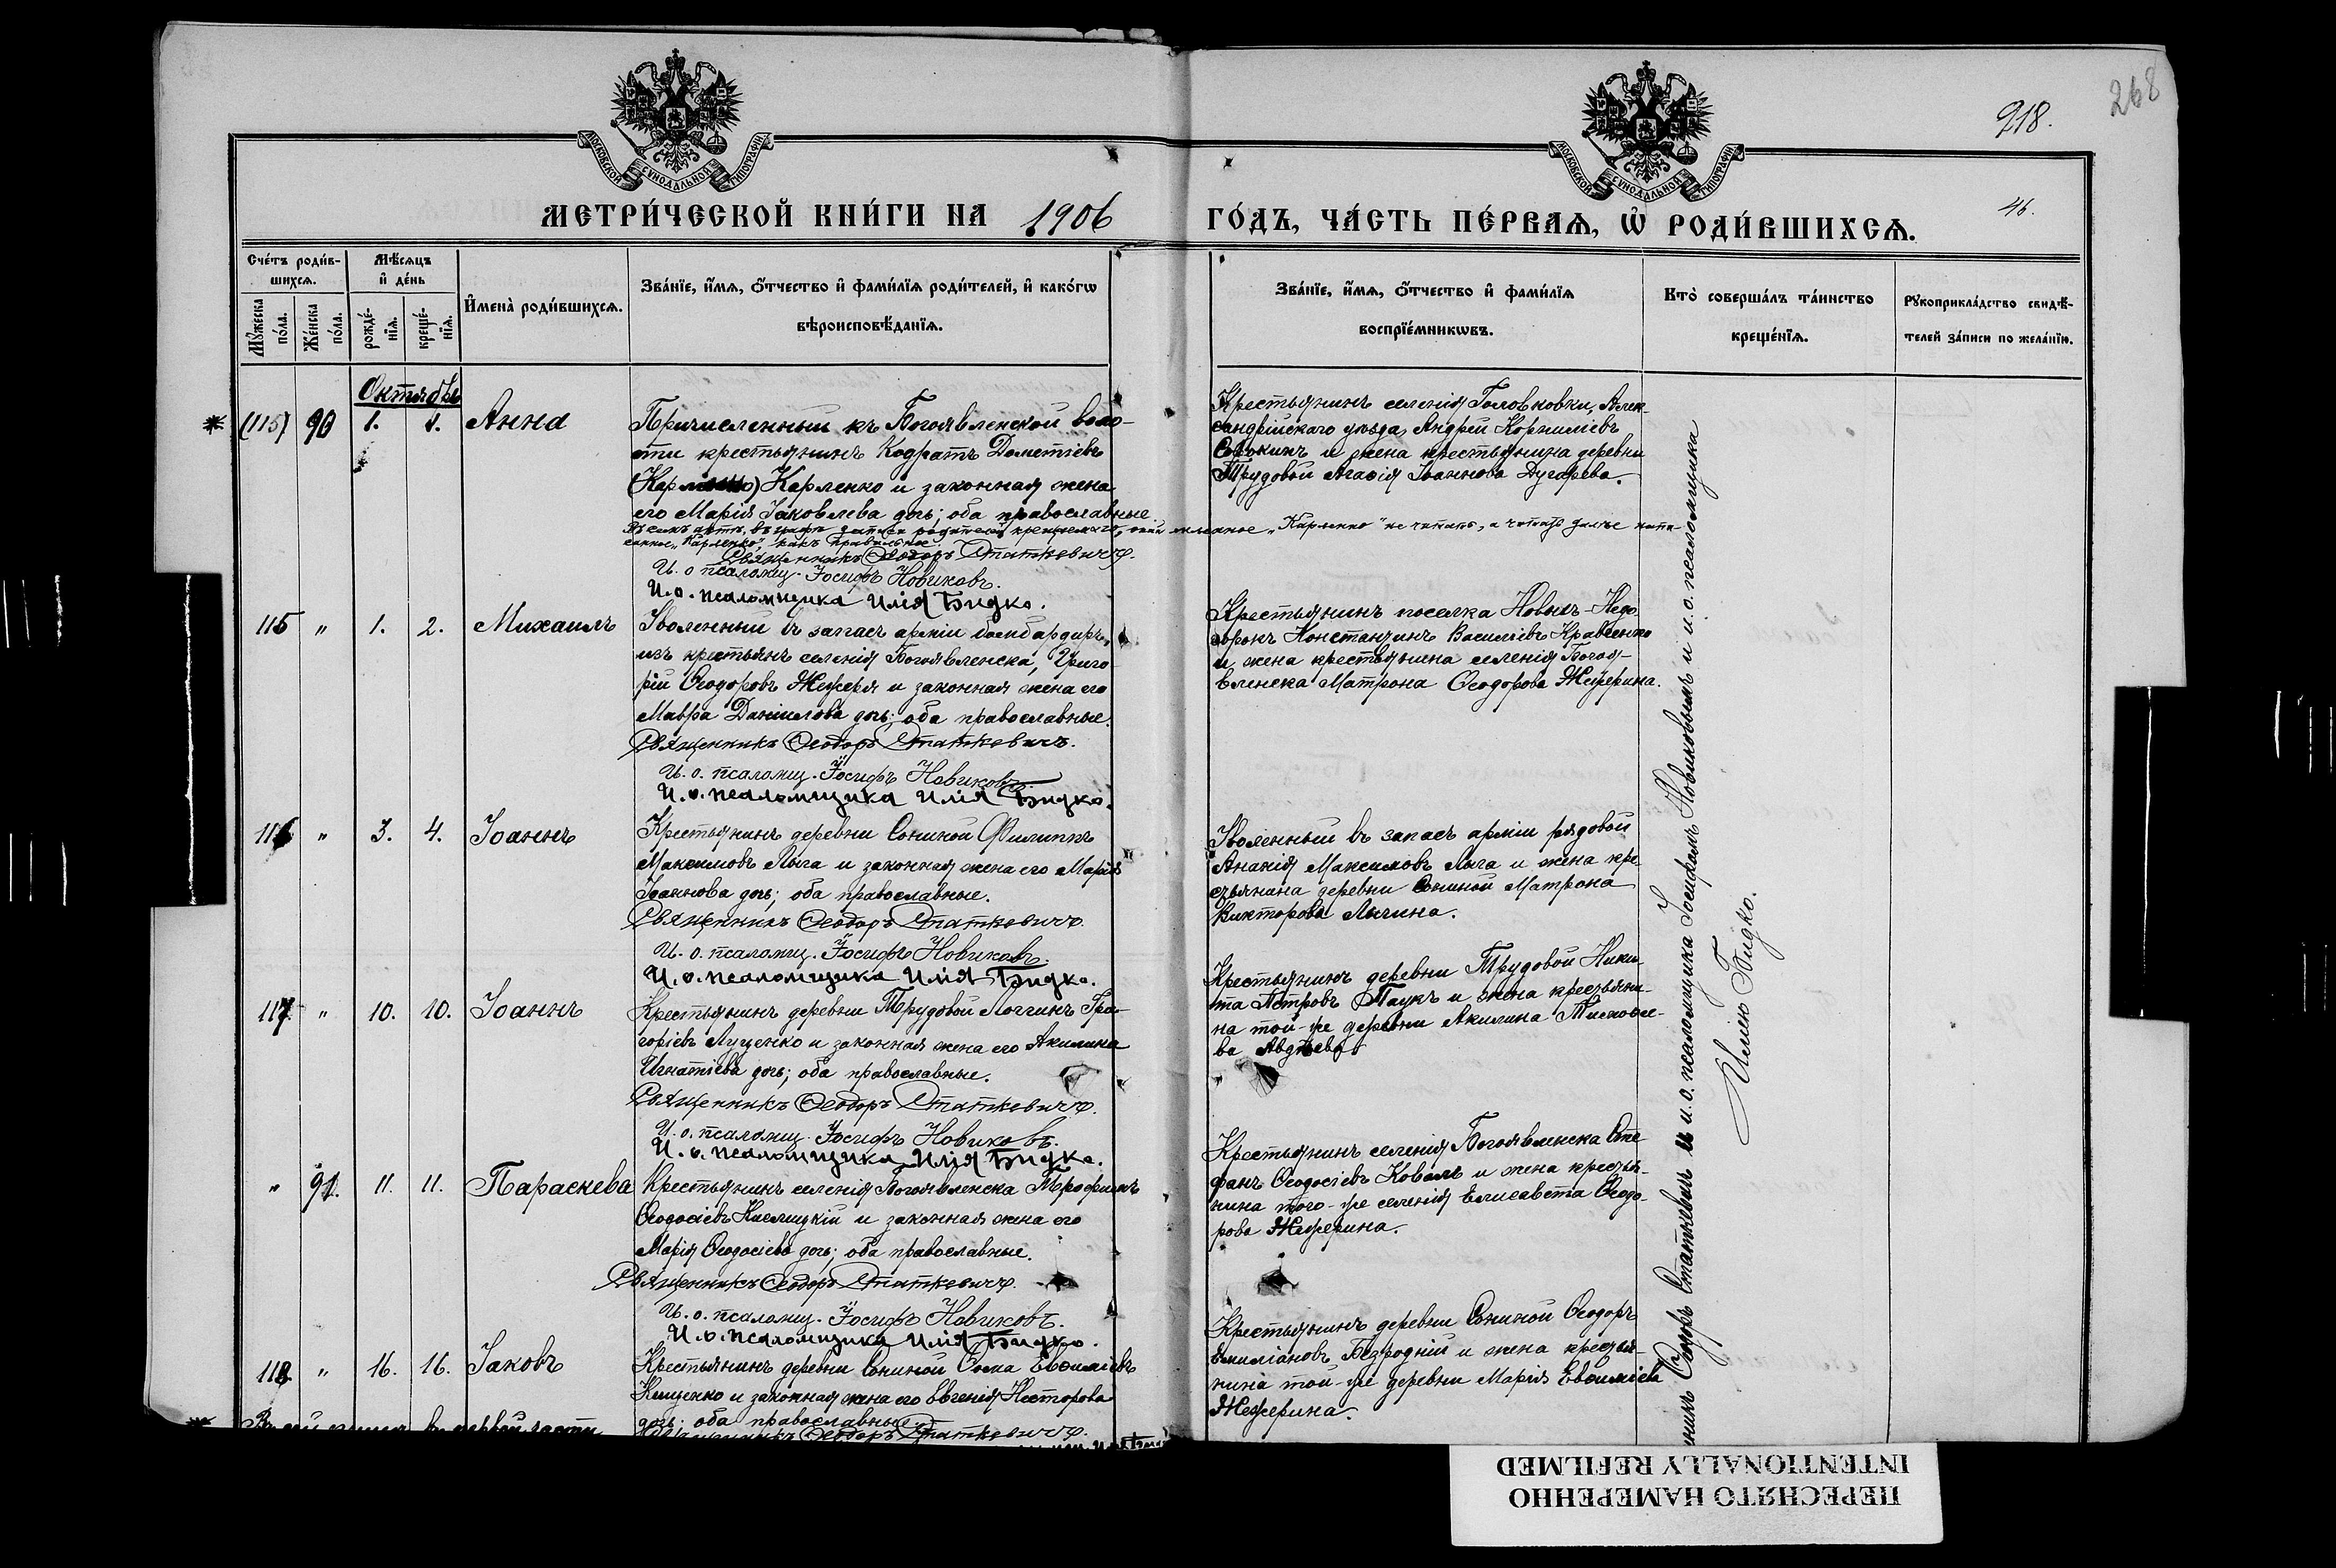 268
218.
46.
МОСКОВСКОЙ СУНОДАЛЬНОЙ ТИПОГРАФІИ
МОСКОВСКОЙ СУНОДАЛЬНОЙ ТИПОГРАФІИ
МЕТРИ́ЧЕСКОЙ КНИ́ГИ НА 1906
ГО́ДЪ, ЧА́СТЬ ПЕ́РВАѦ, Ѡ҆ РОДИ́ВШИХСѦ.
Сче́тъ роди́в-
шихсѧ.
Мꙋ́жеска по́ла.
Же́нска по́ла.
Мѣ́сѧцъ
и҆ де́нь
рожде́-
нїѧ.
креще́-
нїѧ.
И҆мена̀ роди́вшихсѧ.
Зва́нїе, и҆́мѧ, ѻ҆́тчество и҆ фами́лїѧ роди́телей, и҆ како́гѡ
вѣроисповѣ́данїѧ.
Зва́нїе, и҆́мѧ, ѻ҆́тчество и҆ фами́лїѧ
воспрїе́мникѡвъ.
Кто̀ соверша́лъ та́инство
креще́нїѧ.
Рꙋкоприкла́дство свидѣ́-
телей за́писи по жела́нїю.
Октябрь
(115) 90 1. 1. Анна
Причисленный къ Богоявленской воло-
сти крестьянинъ Кодратъ Дометіевъ
Карленко и законная жена
его Марія Іаковлева дочь; оба православные
не читать, а читать далѣе напи-
санное „Карленко“, какъ правильное
Священникъ Ѳеодоръ Статкевичъ.
И. о псаломщ. Іосифъ Новиковъ.
И. о. псаломщика Илія Бидко.
Крестьянинъ селенія Головковки, Алек-
сандрійскаго уѣзда, Андрей Корниліевъ
Сорокинъ и жена крестьянина деревни
Трудовой Агаѳія Іоаннова Дугарева.
115 " 1. 2. Михаилъ
Уволенный въ запасъ арміи бомбардиръ,
изъ крестьянъ селенія Богоявленска, Григо-
рій Ѳеодоровъ Жежеря и законная жена его
Мавра Даніилова дочь; оба православные.
Священникъ Ѳеодоръ Статкевичъ.
И. о. псаломщ. Іосифъ Новиковъ.
И. о. псаломщика Илія Бидко.
Крестьянинъ поселка Новыхъ-
Константинъ Василіевъ Кравченко
и жена крестьянина селенія Богоя-
вленска Матрона Ѳеодорова Жежерина.
116 " 3. 4. Іоаннъ
Крестьянинъ деревни Сониной Филиппъ
Максимовъ Лыга и законная жена его Марія
Іоаннова дочь; оба православные.
Священникъ Ѳеодоръ Статкевичъ.
И. о. псаломщ. Іосифъ Новиковъ.
И. о. псаломщика Илія Бидко.
Уволенный въ запасъ арміи рядовой
Ананія Максимовъ Лыга и жена кре-
стьянина деревни Сониной Матрона
Викторова Лычина.
117. " 10. 10. Іоаннъ
Крестьянинъ деревни Трудовой Логгинъ Гри-
горіевъ Луценко и законная жена его Акилина
Игнатіева дочь; оба православные.
Священникъ Ѳеодоръ Статкевичъ.
И. о. псаломщ. Іосифъ Новиковъ.
И. о. псаломщика Илія Бидко.
Крестьянинъ деревни Трудовой Ники-
та Петровъ Паукъ и жена крестьяни-
на той-же деревни Акилина Тимоѳее-
ва Авдѣева.
" 91. 11. 11. Параскева
Крестьянинъ селенія Богоявленска Трофимъ
Ѳеодосіевъ Кислицкій и законная жена его
Марія Ѳеодосіева дочь; оба православные.
Священникъ Ѳеодоръ Статкевичъ.
И. о. псаломщ. Іосифъ Новиковъ.
И. о. псаломщика Илія Бидко.
Крестьянинъ селенія Богоявленска Сте-
фанъ Ѳеодосіевъ Коваль и жена крестья-
нина того-же селенія Елисавета Ѳеодо-
рова Жежерина.
118. " 16. 16. Іаковъ
Крестьянинъ деревни Сониной Ѳома Евѳиміевъ
Кищенко и законная жена его Евгенія Несторова
дочь; оба православные.
Священникъ Ѳеодоръ Статкевичъ.
Крестьянинъ деревни Сониной Ѳеодоръ
Емиліановъ Безродній и жена крестья-
нина той-же деревни Марія Евѳиміева
Жежерина.
Ѳеодоръ Статкевичъ и и. о. псаломщика Іосифомъ Новиковымъ и и. о. псаломщика
Иліею Бидко.
ПЕРЕСНЯТО НАМЕРЕННО
INTENTIONALLY REFILMED